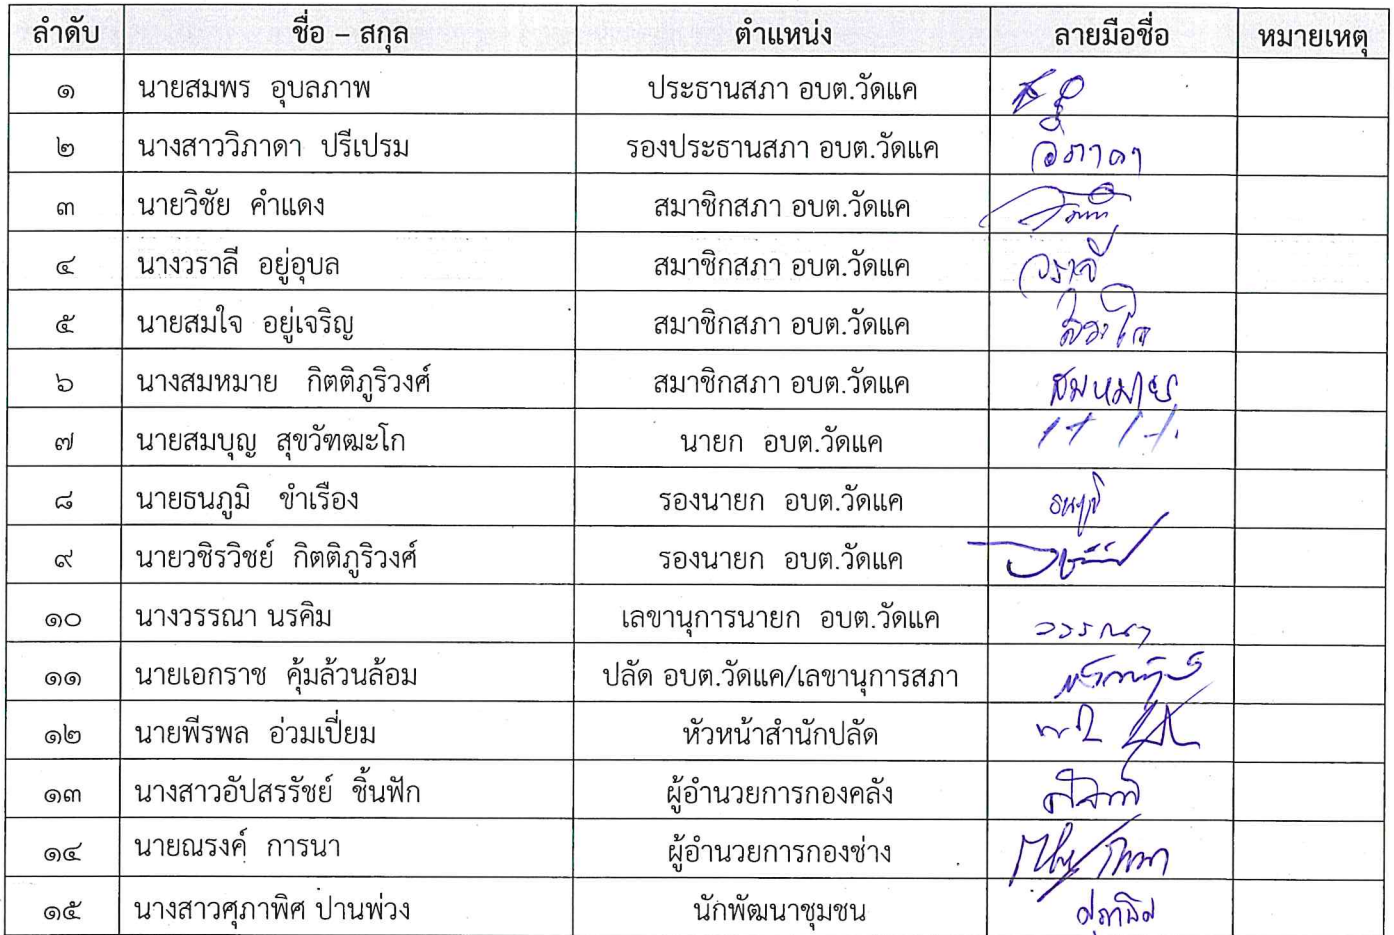 ลำดับ ชื่อ – สกุล ตำแหน่ง ลายมือชื่อ หมายเหตุ
๑ นายสมพร อุบลภาพ ประธานสภา อบต.วัดแค
๒ นางสาววิภาดา ปรีเปรม รองประธานสภา อบต.วัดแค วิภาดา
๓ นายวิชัย คำแดง สมาชิกสภา อบต.วัดแค
๔ นางวราลี อยู่อุบล สมาชิกสภา อบต.วัดแค วราลี
๕ นายสมใจ อยู่เจริญ สมาชิกสภา อบต.วัดแค
๖ นางสมหมาย กิตติภูริวงศ์ สมาชิกสภา อบต.วัดแค สมหมาย
๗ นายสมบุญ สุขวัฑฒะโก นายก อบต.วัดแค
๘ นายธนภูมิ ขำเรือง รองนายก อบต.วัดแค
๙ นายวชิรวิชย์ กิตติภูริวงศ์ รองนายก อบต.วัดแค
๑๐ นางวรรณา นรคิม เลขานุการนายก อบต.วัดแค วรรณา
๑๑ นายเอกราช คุ้มล้วนล้อม ปลัด อบต.วัดแค/เลขานุการสภา
๑๒ นายพีรพล อ่วมเปี่ยม หัวหน้าสำนักปลัด
๑๓ นางสาวอัปสรรัชย์ ชิ้นฟัก ผู้อำนวยการกองคลัง
๑๔ นายณรงค์ การนา ผู้อำนวยการกองช่าง
๑๕ นางสาวศุภาพิศ ปานพ่วง นักพัฒนาชุมชน ศุภาพิศ